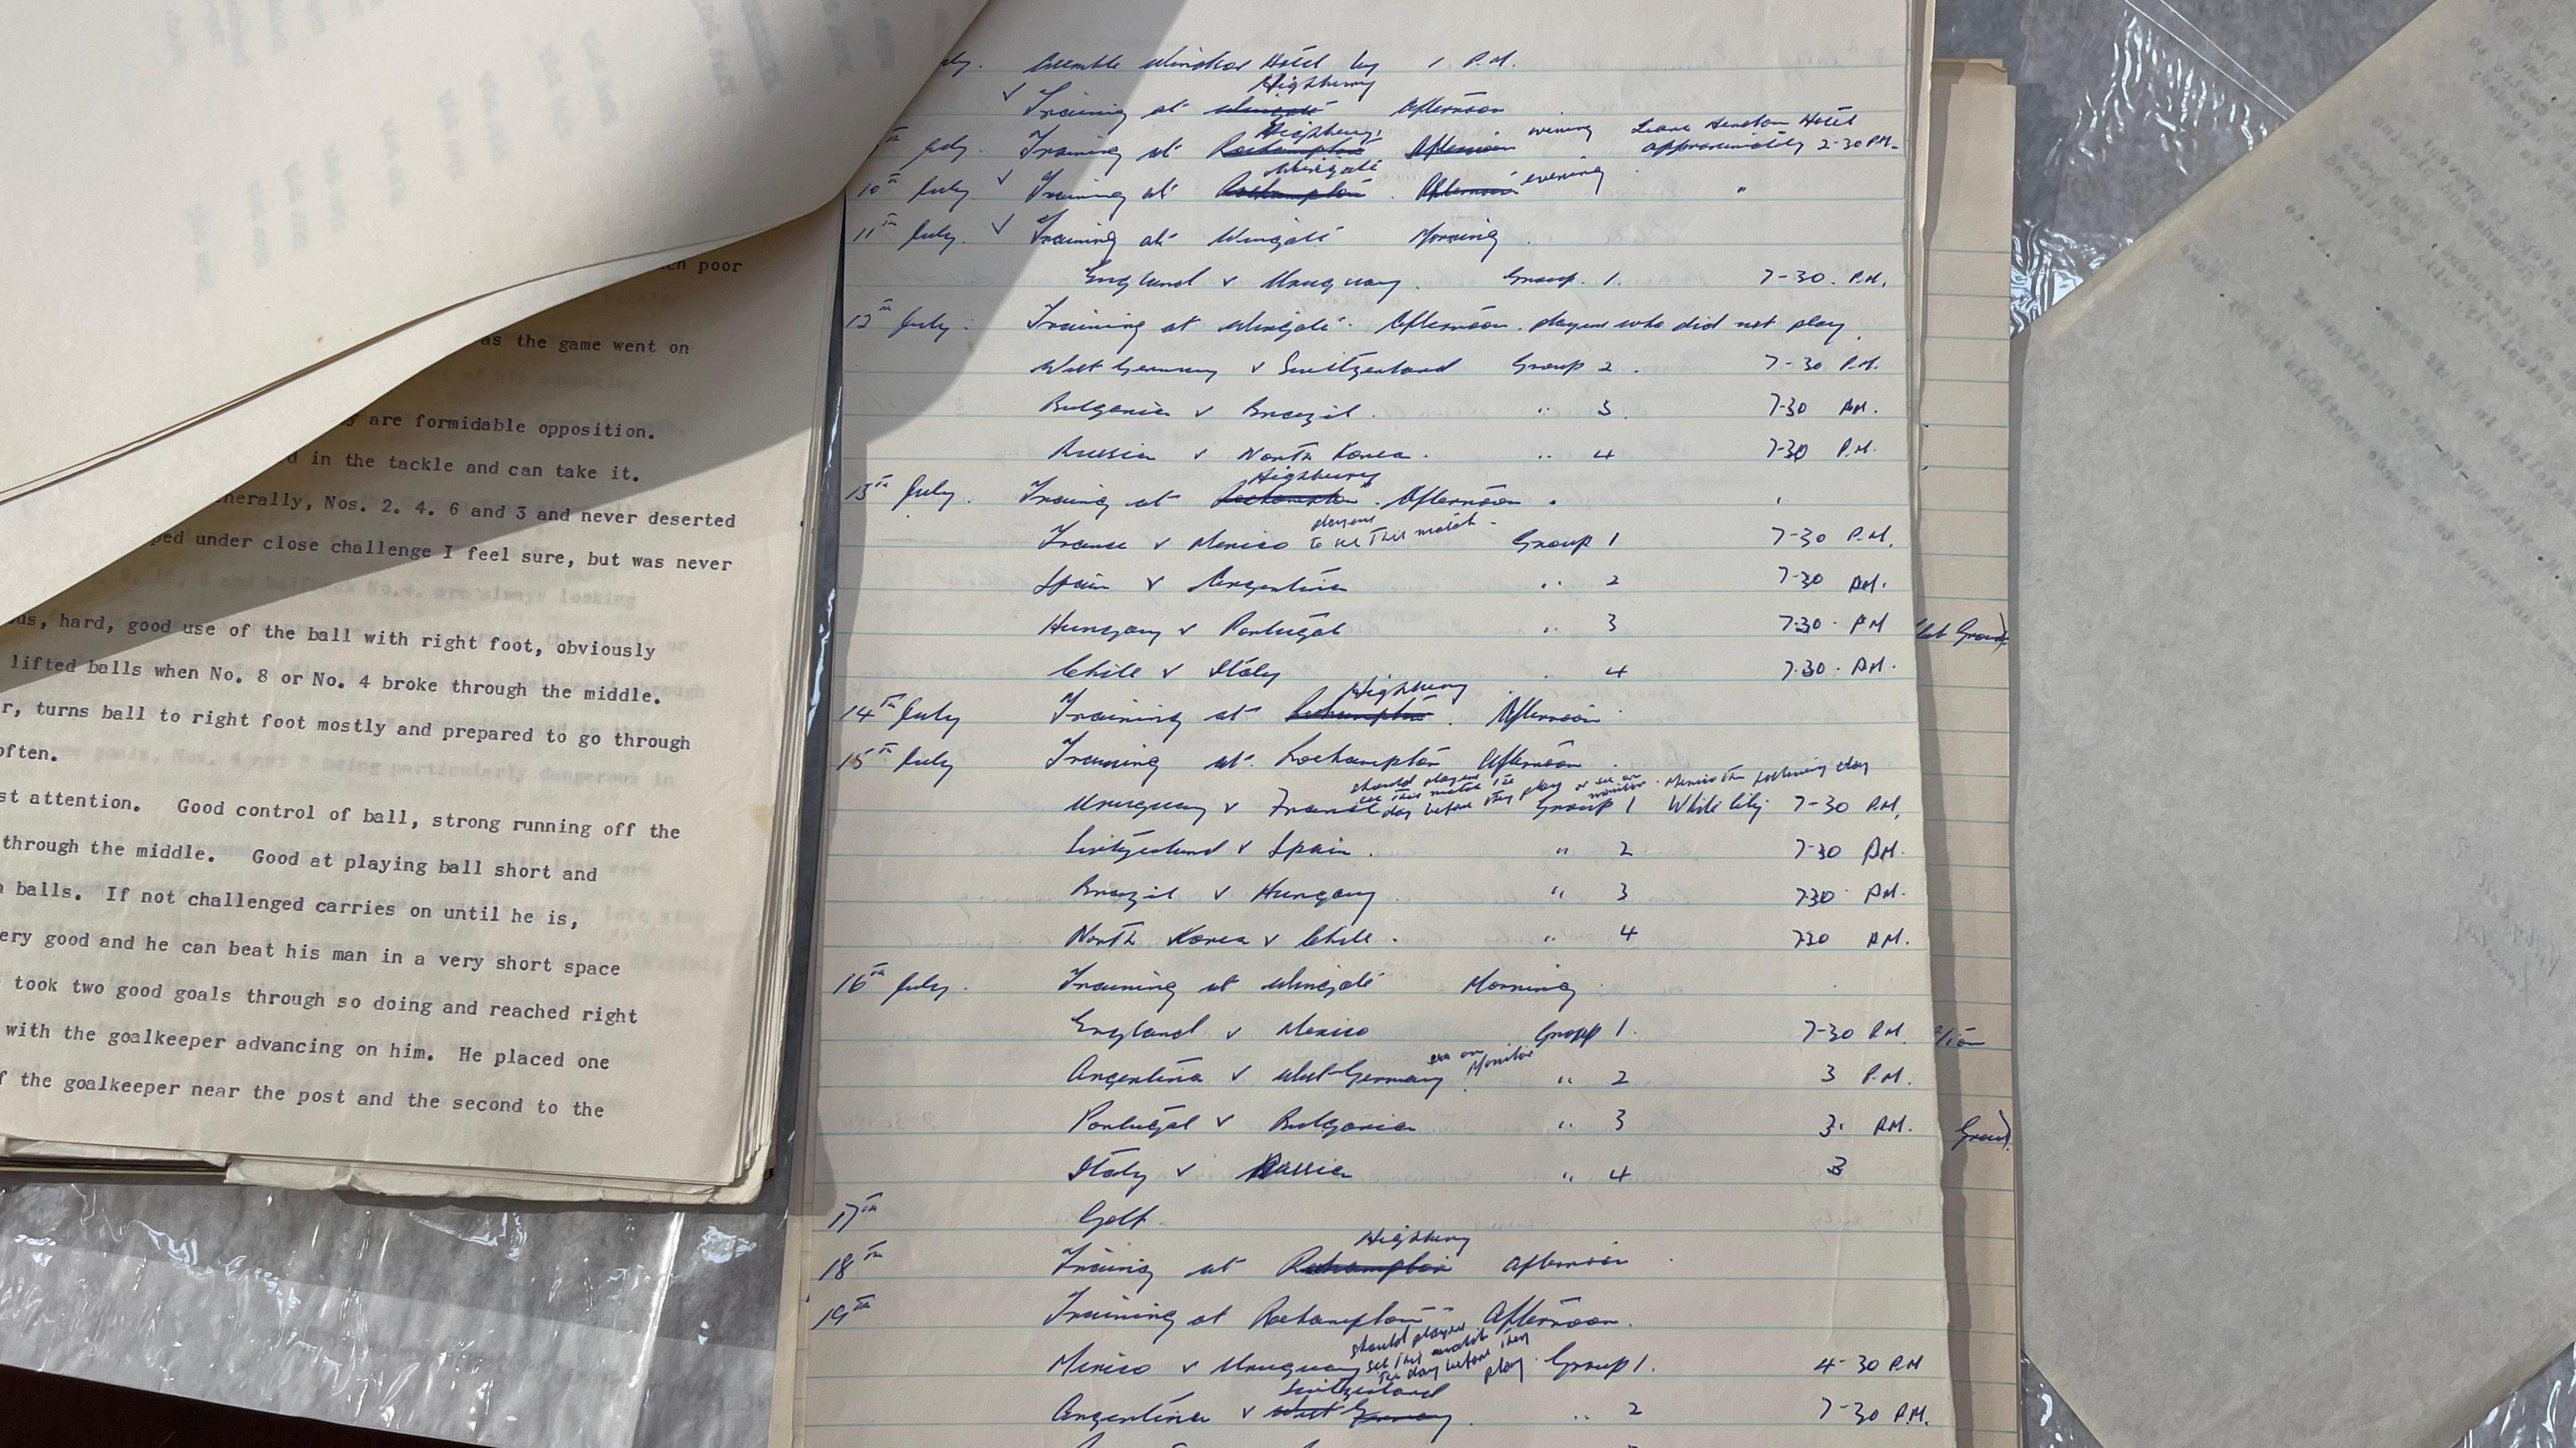 poor
as the game went on
are formidable opposition.
in the tackle and can take it.
nerally, Nos. 2. 4. 6 and 3 and never deserted
ped under close challenge I feel sure, but was never
us, hard, good use of the ball with right foot, obviously
lifted balls when No. 8 or No. 4 broke through the middle.
r, turns ball to right foot mostly and prepared to go through
often.
st attention. Good control of ball, strong running off the
through the middle. Good at playing ball short and
balls. If not challenged carries on until he is,
ery good and he can beat his man in a very short space
took two good goals through so doing and reached right
with the goalkeeper advancing on him. He placed one
f the goalkeeper near the post and the second to the
Hotel by 1 P.M.
Highbury
Training at Wingate Afternoon
Highbury evening Leave Hendon Hotel
July Training at Roehampton Afternoon approximately 2-30 P.M.
Wingate evening
10th July. Training at Roehampton. Afternoon "
11th July. Training at Wingate Morning.
England v Uruguay. Group. 1. 7-30. P.M.
12th July: Training at Wingate. Afternoon. players who did not play.
West Germany v Switzerland Group 2. 7-30 P.M.
Bulgaria v Brazil. " 3. 7-30 P.M.
Russia v North Korea. " 4 7-30 P.M.
Highbury
13th July. Training at Roehampton. Afternoon.
players
France v Mexico to see this match Group 1 7-30 P.M.
Spain v Argentina " 2 7-30 P.M.
Hungary v Portugal " 3 7.30. PM
Chile v Italy " 4 7.30. P.M.
Highbury
14th July Training at Roehampton. Afternoon
15th July Training at Roehampton Afternoon.
should players see this match the day before they play or see on monitor. Mexico the following day
Uruguay v France Group 1 White City 7-30 P.M.
Switzerland v Spain. " 2 7-30 P.M.
Brazil v Hungary. " 3 7.30 P.M.
North Korea v Chile. " 4 7.30 P.M.
16th July. Training at Wingate Morning
England v Mexico Group 1. 7-30 P.M.
see on Monitor
Argentina v West Germany " 2 3 P.M.
Portugal v Bulgaria " 3 3. P.M.
Italy v Russia " 4 3
17th Golf.
Highbury
18th Training at Roehampton afternoon
19th Training at Roehampton Afternoon.
should players see this match the day before they play.
Mexico v Uruguay Group 1. 4-30 P.M
Switzerland
Argentina v West Germany. " 2 7-30 P.M.